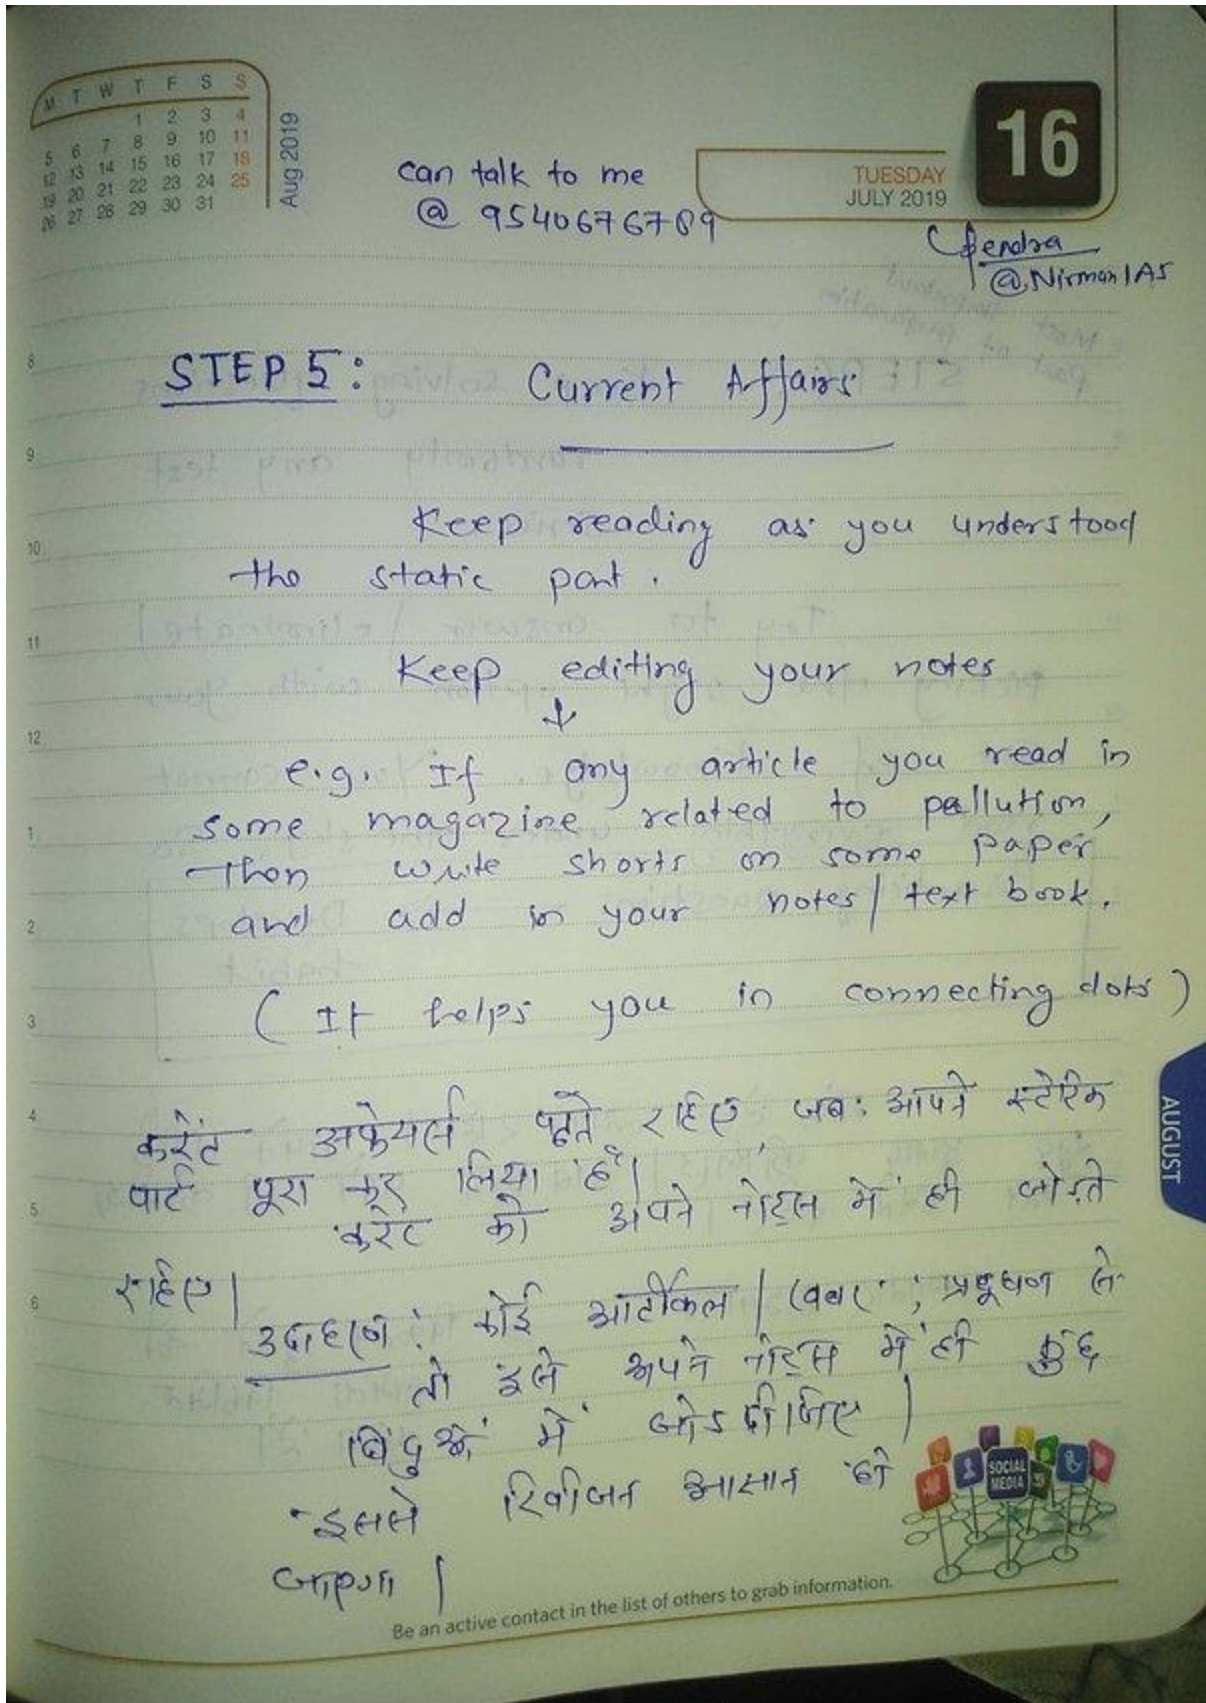 M T W T F S S
1 2 3 4
5 6 7 8 9 10 11
12 13 14 15 16 17 18
19 20 21 22 23 24 25
26 27 28 29 30 31
Aug 2019
16
TUESDAY
JULY 2019
can talk to me
@ 9540676789
Upendra
@NirmanIAS
8
STEP 5: Current Affairs
9
Keep reading as you understood
10
the static part.
11
Keep editing your notes
↓
12
e.g. If any article you read in
some magazine related to pollution,
1
then write shorts on some paper
and add in your notes/ text book.
2
(It helps you in connecting dots)
3
4
करेंट अफेयर्स पढ़ते रहिए, जब आपने स्टेटिक
पार्ट पूरा कर लिया है।
5
करेंट को अपने नोट्स में ही जोड़ते
रहिए।
6
उदाहरण: कोई आर्टीकल / खबर, प्रदूषण से
तो इसे अपने नोट्स में ही कुछ
बिंदुओं में जोड दीजिए।
इससे रिवीजन आसान हो
जाएगा।
AUGUST
SOCIAL
MEDIA
Be an active contact in the list of others to grab information.